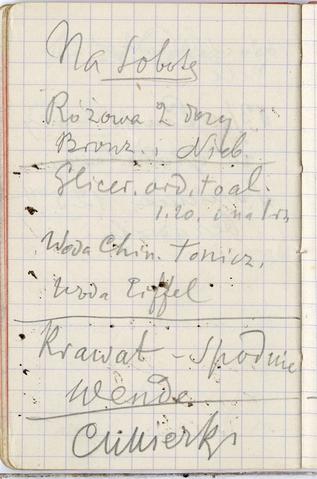 Na Sobotę
Różowa 2 dozy
Bronz. i Nieb.
Glicer. ord. toal.
1.20. i na
Woda Chin. Tonicz.
Woda Eiffel
Krawat - Spodnie
Wende
Cukierki